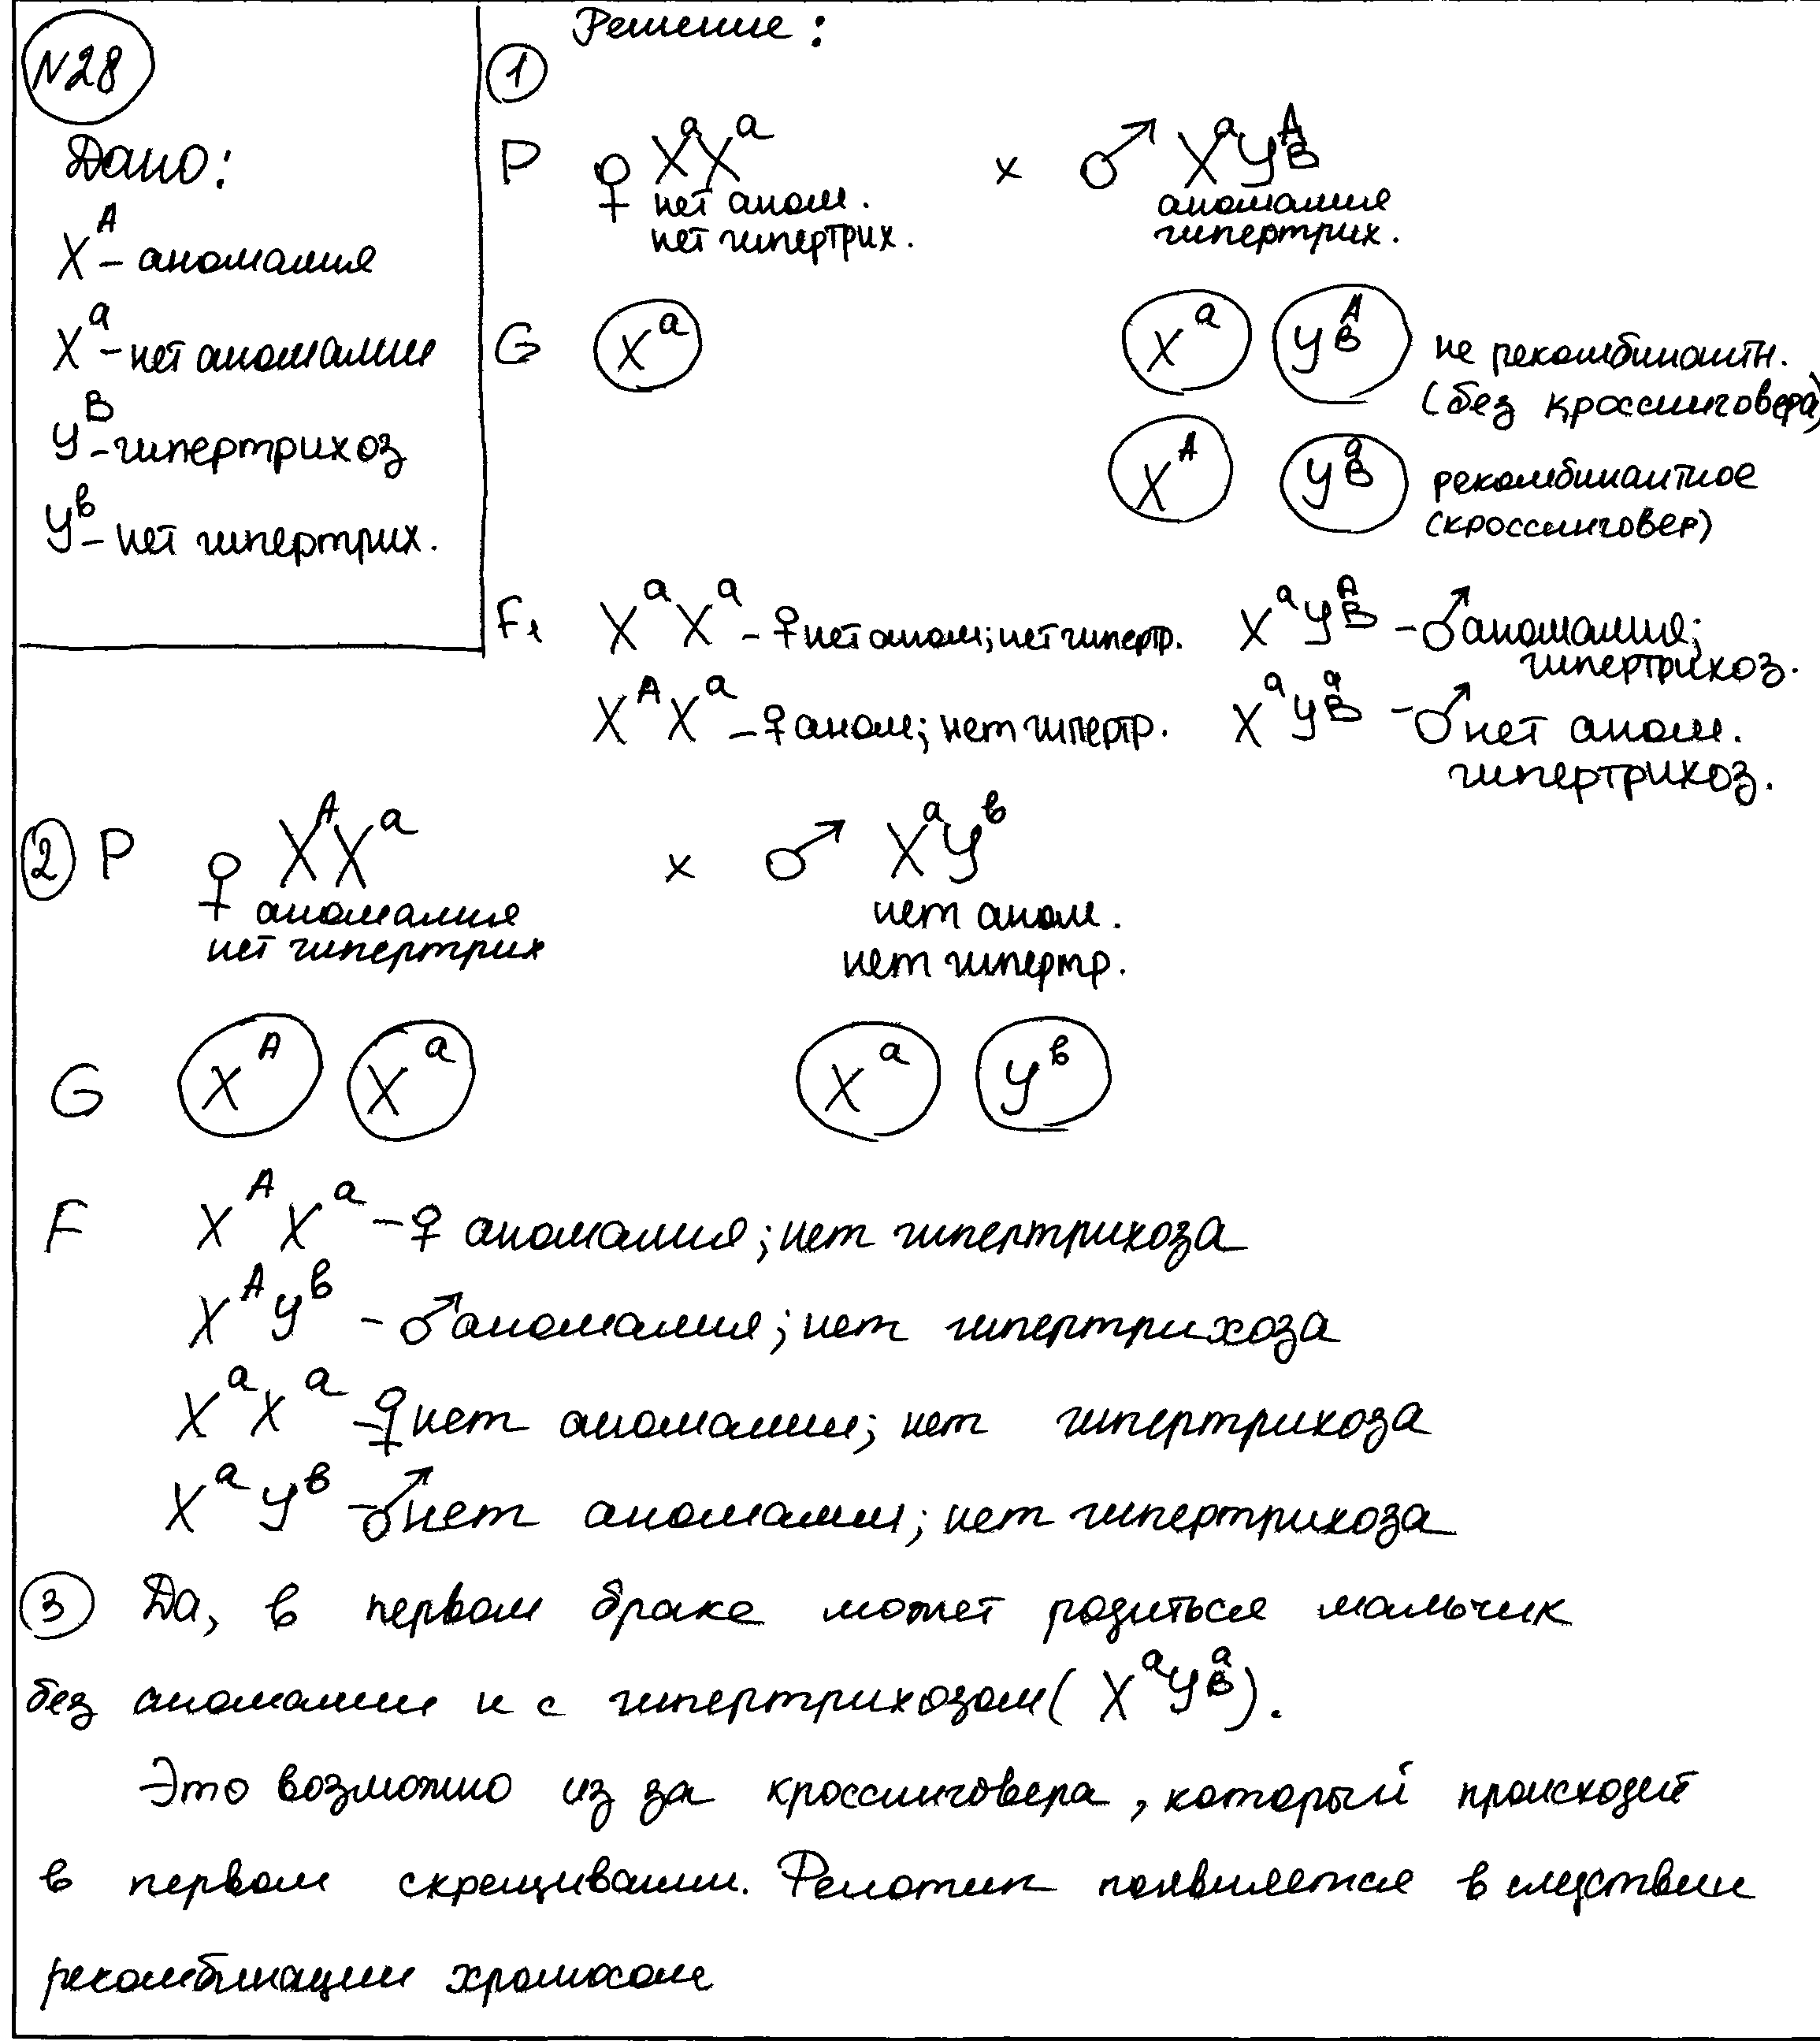 N28
Дано:
X^A – аномалия
X^a – нет аномалии
У^B – гипертрихоз
У^b – нет гипертрих.
Решение:
1
P ♀ X^aX^a x ♂ X^aУ^A_B
нет аном. аномалия
нет гипертрих. гипертрих.
G X^a X^a У^A_B не рекомбинантн.
(без кроссинговера)
X^A У^a_B рекомбинантное
(кроссинговер)
F1 X^a X^a – ♀ нет аном; нет гипертр. X^aУ^A_B – ♂ аномалия;
гипертрихоз.
X^A X^a – ♀ аном; нет гипертр. X^aУ^a_B – ♂ нет аном.
гипертрихоз.
2 P ♀ X^AX^a x ♂ X^aУ^b
аномалия нет аном.
нет гипертрих нет гипертр.
G X^A X^a X^a У^b
F X^A X^a – ♀ аномалия; нет гипертрихоза
X^A У^b – ♂ аномалия; нет гипертрихоза
X^a X^a – ♀ нет аномалии; нет гипертрихоза
X^a У^b – ♂ нет аномалии; нет гипертрихоза
3 Да, в первом браке может родиться мальчик
без аномалии и с гипертрихозом (X^aУ^a_B).
Это возможно из за кроссинговера, который происходит
в первом скрещивании. Фенотип появляется в следствии
рекомбинации хромосом